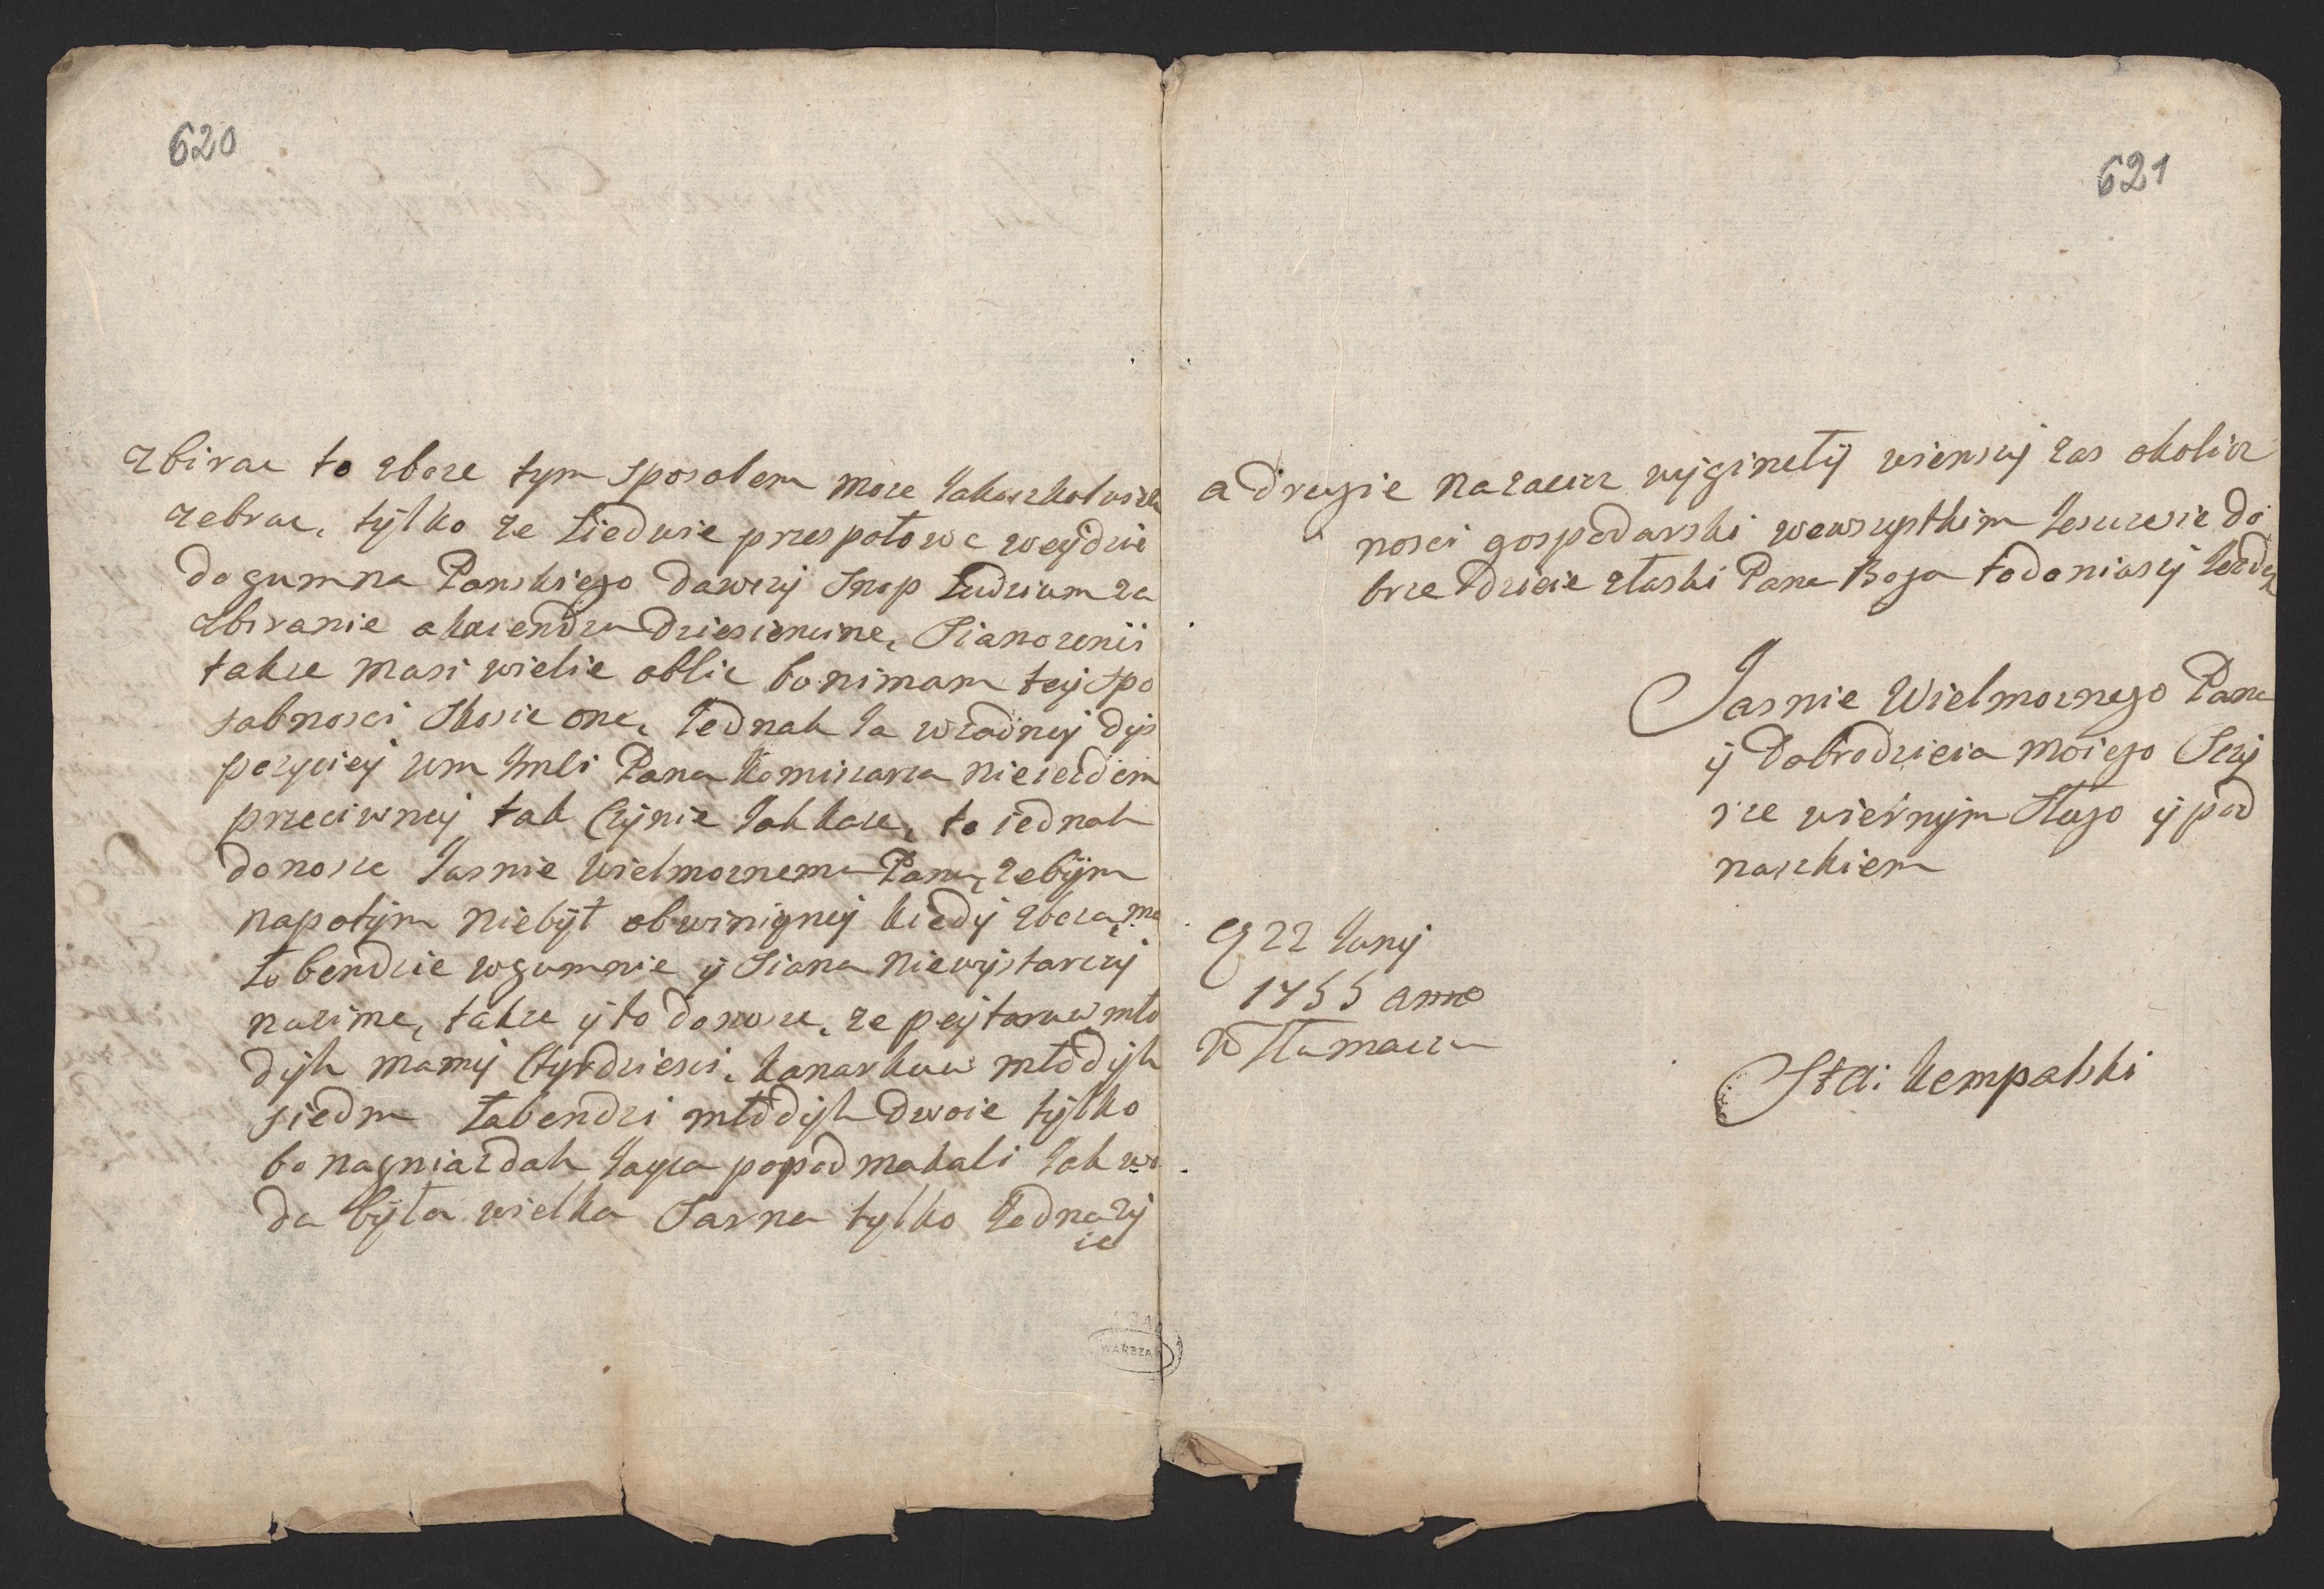 620
zbirac to zboze tym sposobem moze Jakaszkolwiek
zebrac, tylko ze Liedwie przespołowe weydzie
do gumna Panskiego dawszy Snop Ludzium za
zbiranie a kxiendzu dziesiencine, Sianozenii
takze masi wielie oblic bo nimam tey spo
sabnosci Skosic one, Jednak Ja w żadney dys
pozyciey wm Jmli Pana Komisarza nieiezdem
przeciwney tak Czynie Jak kaze, to iednak
donosze Jasnie Wielmoznemu Panu, zebym
napotym niebył obwinigney kiedy zboza ma
ło bendzie w gumnie y Siana niewystarczy
nazime, takze y to donosze, ze peytoruw mło
dyh mamy Cztyrdziesci, kanarkuw młodyh
siedm Łabendzi młodyh dwoie tylko
bo nagniazdah Jayca popodmakali Jak wo
da była wielka Sarna tylko Jedna zy
ie
621
a drugie nazawsz wyginety wienszy zas okolicz
nosci gospodarski wewszystkim Jeszczesie do
brze dzieie złaski Pana Boga to doniosszy Jezdem
Jasnie Wielmoznego Pana
y Dobrodzieia moiego Szczy
rze wiernym Sługo y pod
naszkiem
22 Juny
1755 anno
W Tłumaczu
Sta: Kempalski
WARSZA